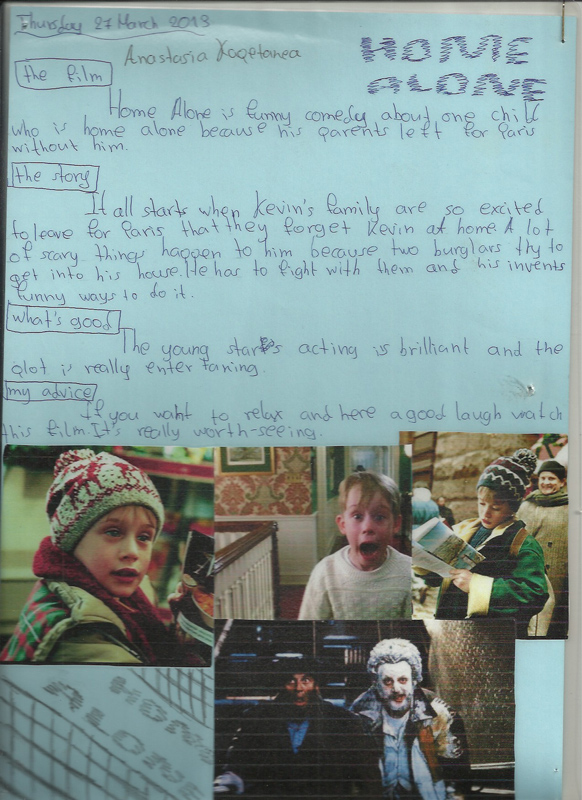 Thursday 27 March 2013
Anastasia
HOME
ALONE
the film
Home Alone is funny comedy about one child
who is home alone because his parents left for Paris
without him.
the story
It all starts when Kevin's family are so excited
to leave for Paris that they forget Kevin at home. A lot
of scary things happen to him because two burglars try to
get into his house. He has to fight with them and his invents
funny ways to do it.
what's good
The young star's acting is brilliant and the
plot is really entertaning.
my advice
If you want to relax and here a good laugh watch
this film. It's really worth-seeing.
HOME
ALONE